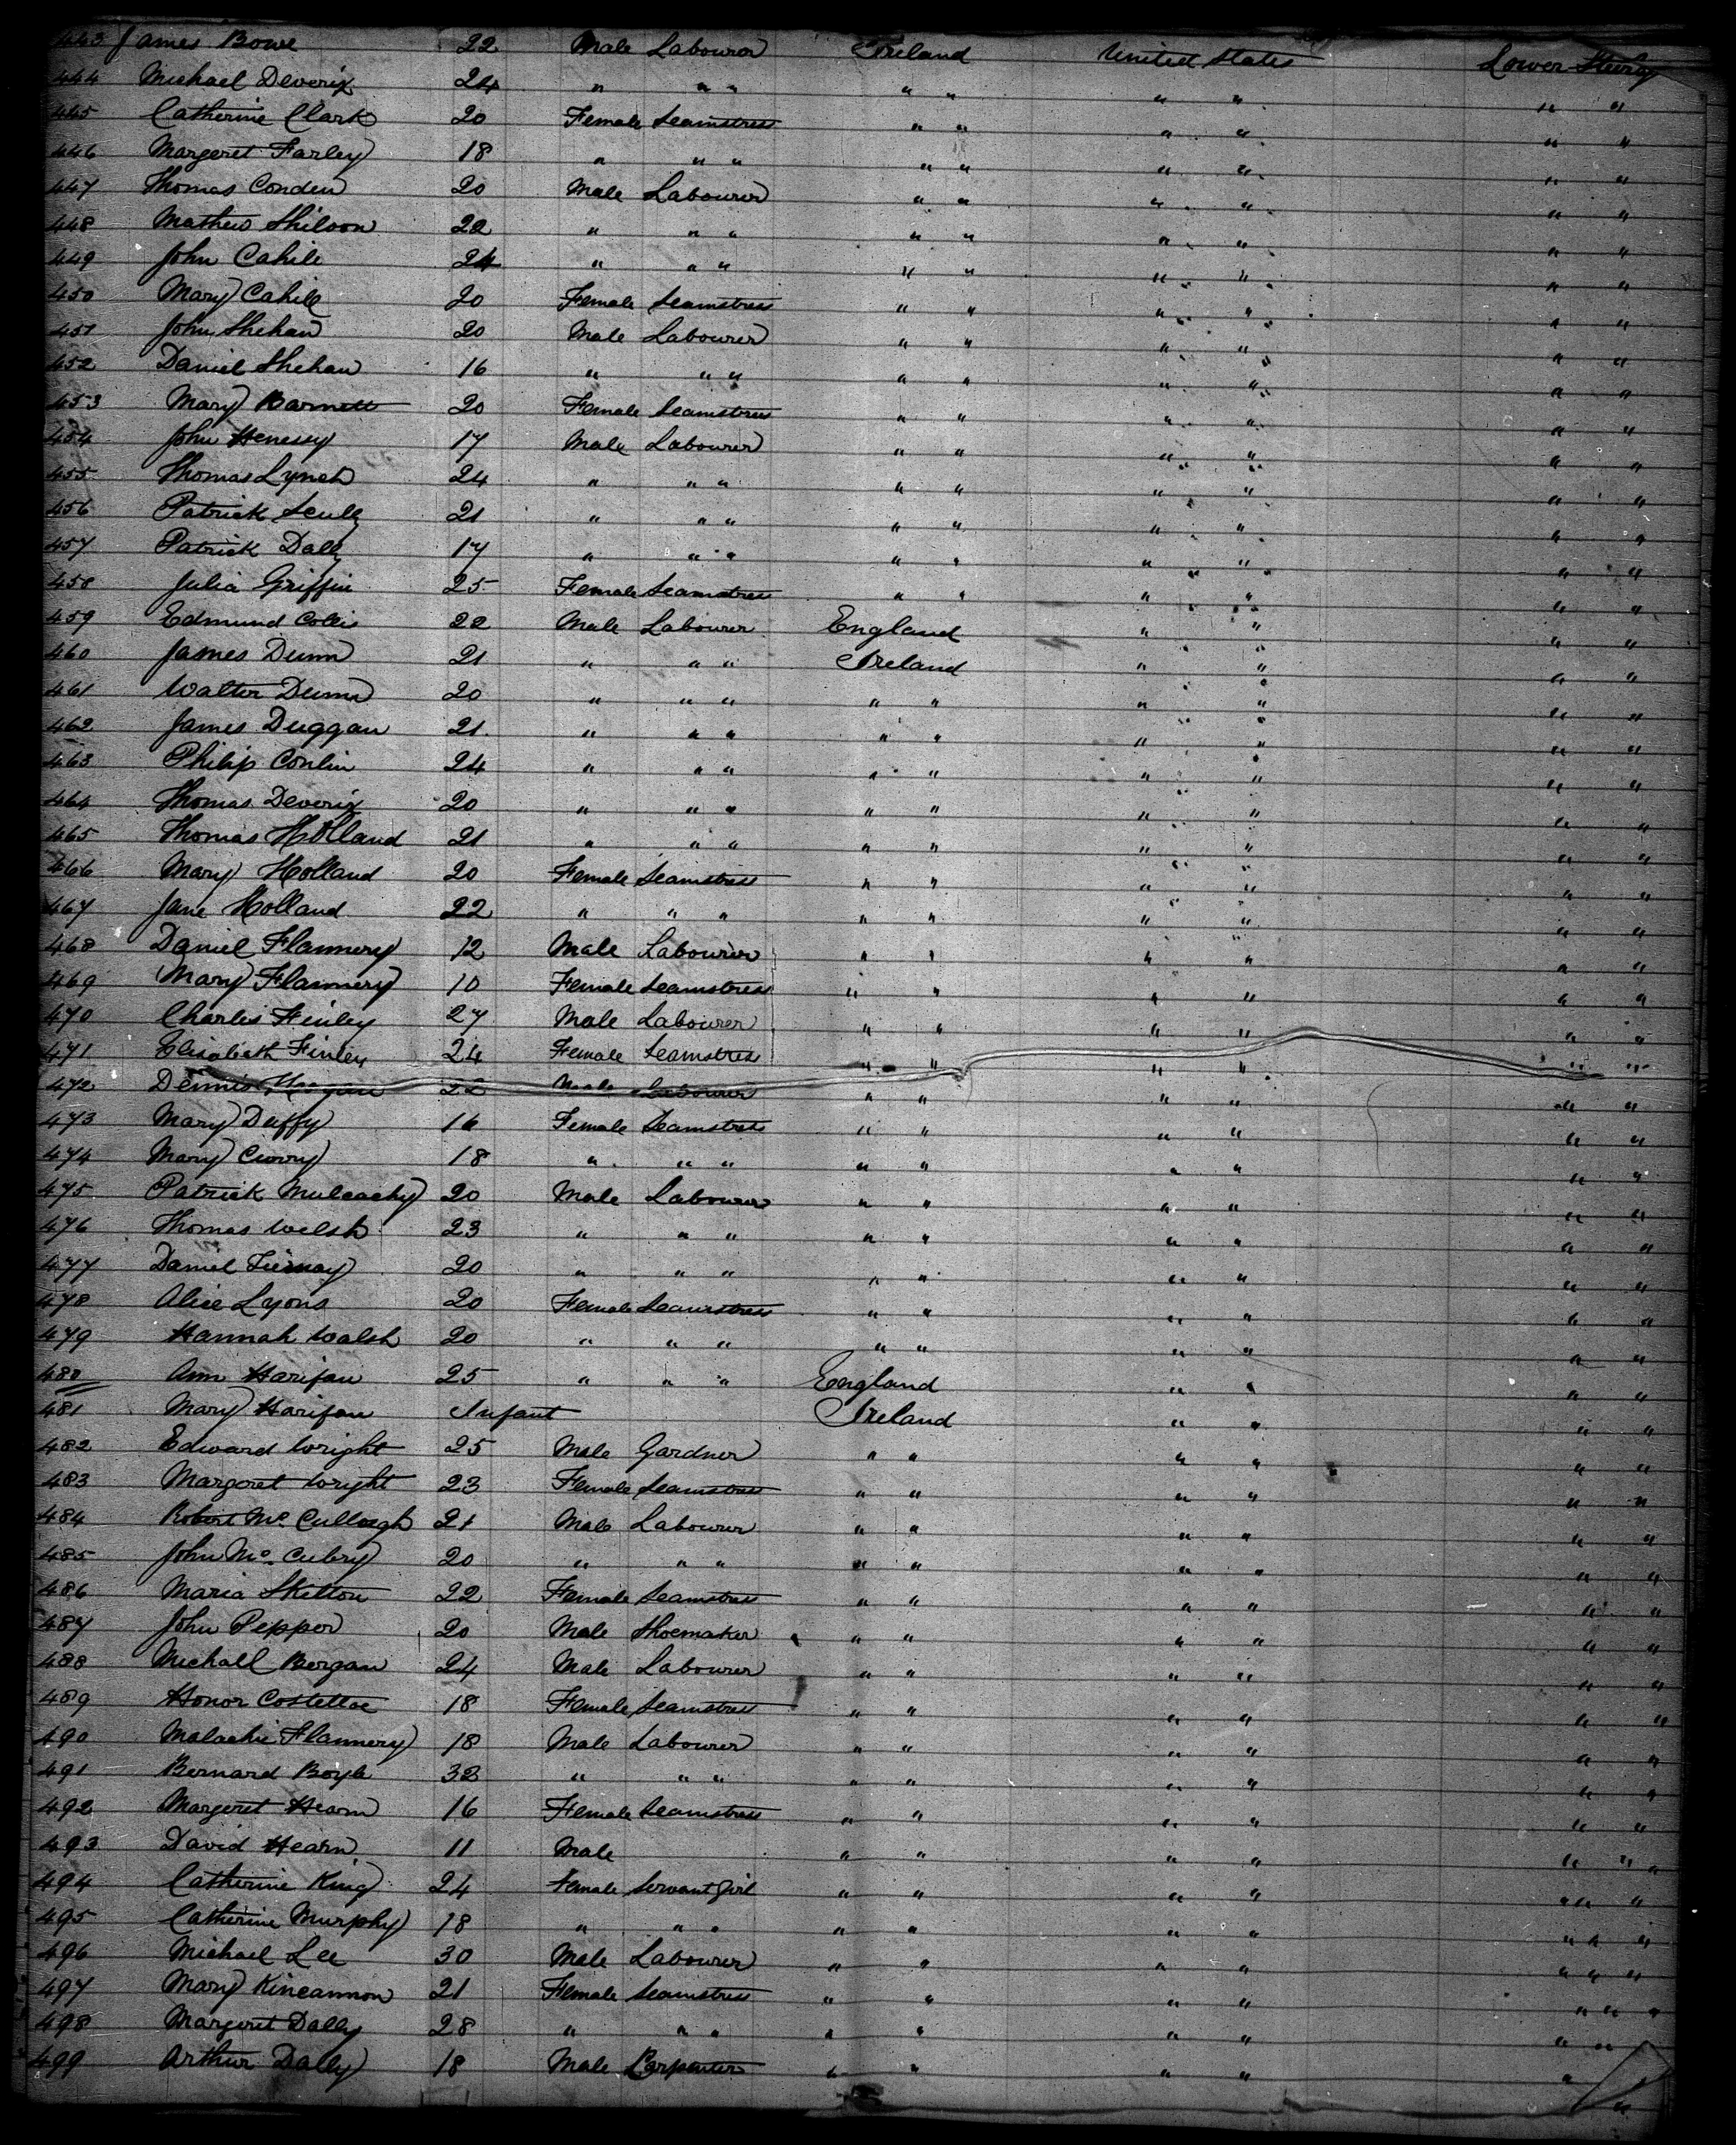 443 James Bowe 22 Male Labourer Ireland United States Lower Steerage
444 Michael Deverix 24 " " " " " " " " "
445 Catherine Clark 20 Female Seamstress " " " " " "
446 Margeret Farley 18 " " " " " " " " "
447 Thomas Conden 20 Male Labourer " " " " " "
448 Mathew 22 " " " " " " " " "
449 John Cahill 24 " " " " " " " " "
450 Mary Cahill 20 Female Seamstress " " " " " "
451 John Shehan 20 Male Labourer " " " " " "
452 Daniel Shehan 16 " " " " " " " " "
453 Mary Barnett 20 Female Seamstress " " " " " "
454 John Henessy 17 Male Labourer " " " " " "
455 Thomas Lynch 24 " " " " " " " " "
456 Patrick Scully 21 " " " " " " " " "
457 Patrick Dally 17 " " " " " " " " "
458 Julia Griffin 25 Female Seamstress " " " " " "
459 Edmund Collis 22 Male Labourer England " " " "
460 James Dunn 21 " " " Ireland " " " "
461 Walter Dunn 20 " " " " " " " " "
462 James Duggan 21 " " " " " " " " "
463 Philip Conlin 24 " " " " " " " " "
464 Thomas Deverix 20 " " " " " " " " "
465 Thomas Holland 21 " " " " " " " " "
466 Mary Holland 20 Female Seamstress " " " " " "
467 Jane Holland 22 " " " " " " " " "
468 Daniel Flannery 12 Male Labourer " " " " " "
469 Mary Flannery 10 Female Seamstress " " " " " "
470 Charles Finley 27 Male Labourer " " " " " "
471 Elisabeth Finley 24 Female Seamstress " " " " " "
472 Dennis 22 Male Labourer " " " " " "
473 Mary Duffy 16 Female Seamstress " " " " " "
474 Mary Curry 18 " " " " " " " " "
475 Patrick Mulcachy 20 Male Labourer " " " " " "
476 Thomas Welsh 23 " " " " " " " " "
477 Daniel 20 " " " " " " " " "
478 Alice Lyons 20 Female Seamstress " " " " " "
479 Hannah Walsh 20 " " " " " " " " "
480 Ann Harifan 25 " " " England " " " "
481 Mary Harifan Infant Ireland " " " "
482 Edward Wright 25 Male Gardner " " " " " "
483 Margeret Wright 23 Female Seamstress " " " " " "
484 Robert Mc Cullough 21 Male Labourer " " " " " "
485 John Mc 20 " " " " " " " " "
486 Maria Skelton 22 Female Seamstress " " " " " "
487 John Pepper 20 Male Shoemaker " " " " " "
488 Michall Bergan 24 Male Labourer " " " " " "
489 Honor Costelloe 18 Female Seamstress " " " " " "
490 Malachie Flannery 18 Male Labourer " " " " " "
491 Bernard Boyle 32 " " " " " " " " "
492 Margeret Hearn 16 Female Seamstress " " " " " "
493 David Hearn 11 Male " " " " " "
494 Catherine King 24 Female Servant Girl " " " " " "
495 Catherine Murphy 18 " " " " " " " " "
496 Michael Lee 30 Male Labourer " " " " " " "
497 Mary Kincannon 21 Female Seamstress " " " " " " "
498 Margeret Dally 28 " " " " " " " " "
499 Arthur Dally 18 Male Carpenter " " " " " "